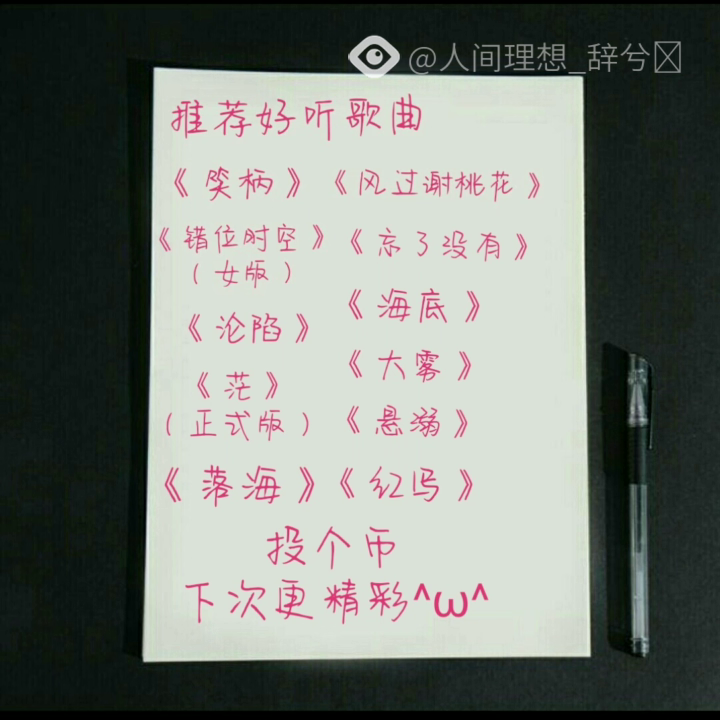 @人间理想_辞兮
推荐好听歌曲
《笑柄》《风过谢桃花》
《错位时空》《忘了没有》
(女版)
《海底》
《沦陷》
《大雾》
《茫》
(正式版)《悬溺》
《落海》《红马》
投个币
下次更精彩^ω^